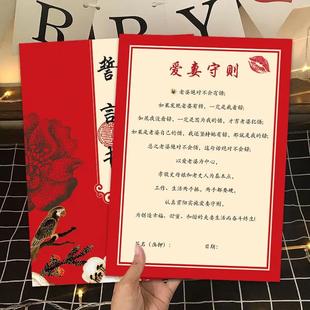 BABY
誓言书
爱妻守则
老婆绝对不会有错;
如果发现老婆有错,一定是我看错;
如果我没看错,一定是因为我的错,才害老婆犯错;
如果是老婆自己的错,我还坚持她有错,那就是我的错;
总之老婆绝对不会错,这句话绝对不会错;
以爱老婆为中心,
孝敬丈母娘和老丈人为基本点,
工作、生活两手抓,两手都要硬,
认真贯彻实施爱妻守则,
为创造幸福、甜蜜、和谐的夫妻生活而奋斗终生!
签名(画押):
日期: